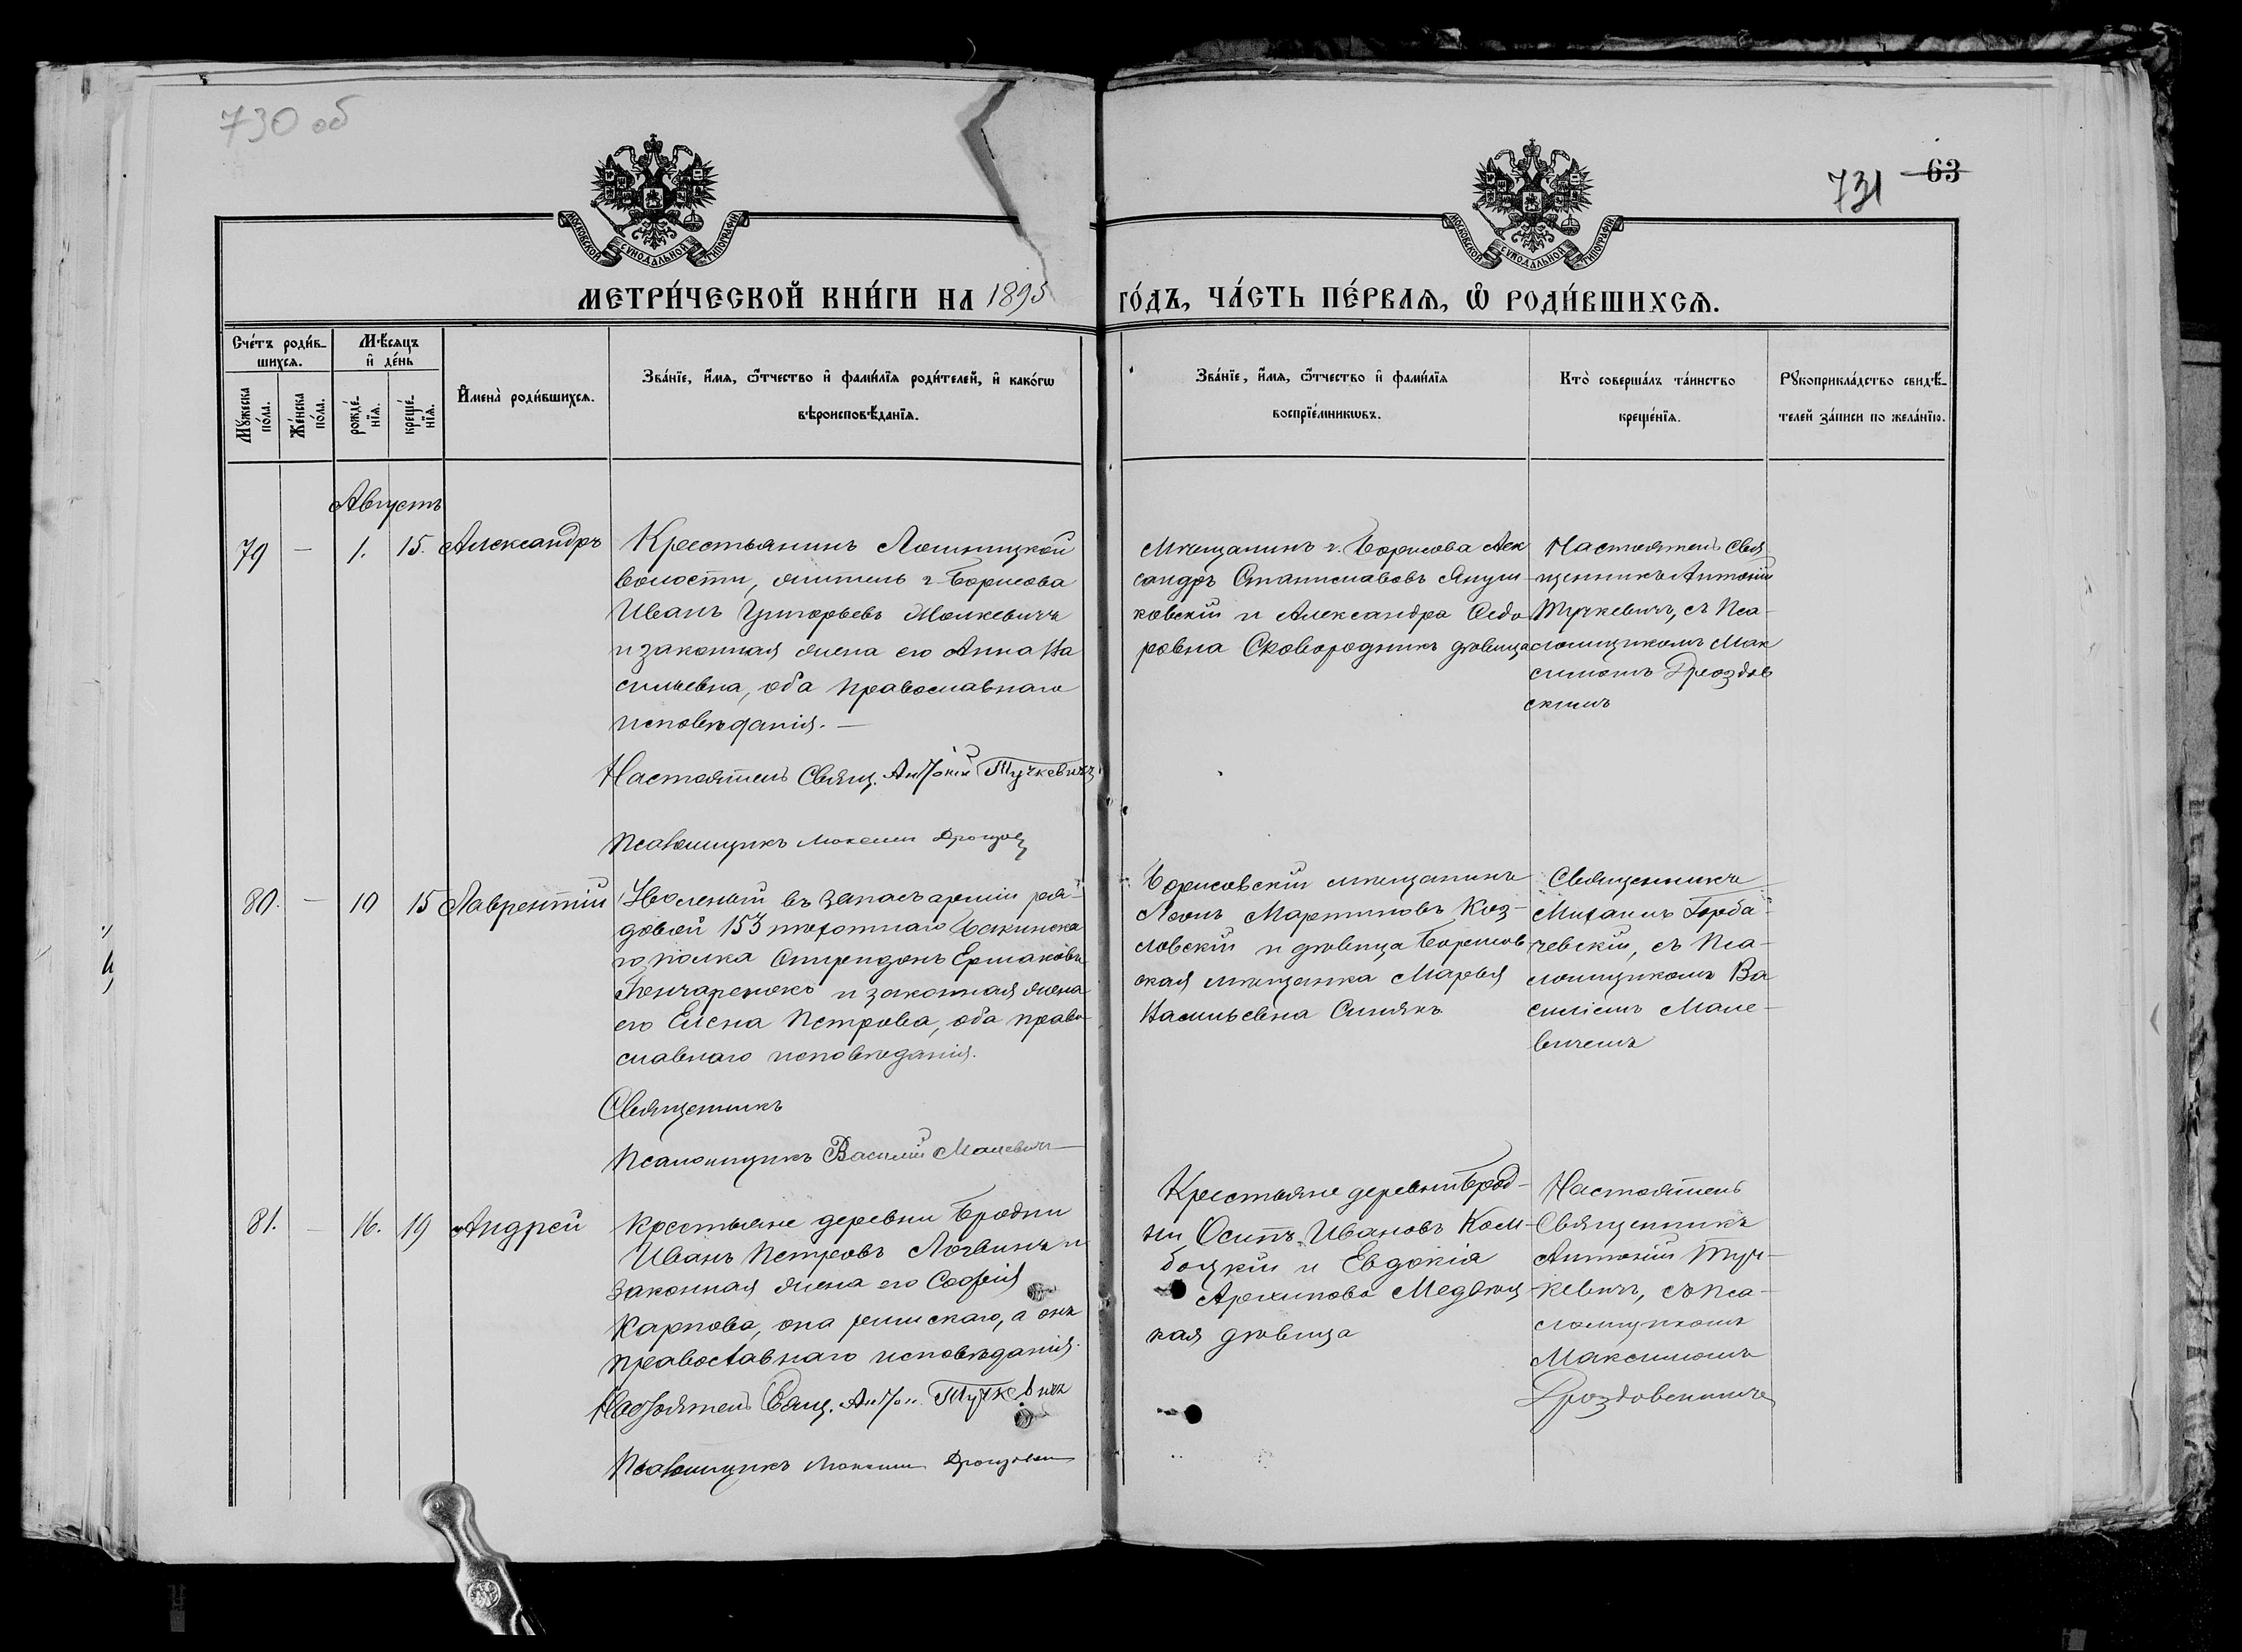 730 об
731 63
МОСКОВСКОЙ СУНОДАЛЬНОЙ ТИПОГРАФІИ
МОСКОВСКОЙ СУНОДАЛЬНОЙ ТИПОГРАФІИ
МЕТРИ́ЧЕСКОЙ КНИ́ГИ НА 1895
ГО́ДЪ, ЧА́СТЬ ПЕ́РВАѦ, Ѡ҆ РОДИ́ВШИХСѦ.
Сче́тъ роди́в-
шихсѧ.
Мѣ́сѧцъ
и҆ де́нь
Мꙋ́жеска
по́ла.
Же́нска
по́ла.
рожде́-
нїѧ.
креще́-
нїѧ.
И҆мена̀ роди́вшихсѧ.
Зва́нїе, и҆́мѧ, ѻ҆́тчество и҆ фами́лїѧ роди́телей, и҆ како́гѡ
вѣроисповѣ́данїѧ.
Зва́нїе, и҆́мѧ, ѻ҆́тчество и҆ фами́лїѧ
воспрїе́мникѡвъ.
Кто̀ соверша́лъ та́инство
креще́нїѧ.
Рꙋкоприкла́дство свидѣ́-
телей за́писи по жела́нїю.
Августъ
79 — 1. 15. Александръ
Крестьянинъ Лошницкой
волости, житель г. Борисова
Иванъ Григорьевъ Молкевичъ
и законная жена его Анна Ва
сильевна, оба православнаго
исповѣданія. —
Настоятель Свящ. Антоній Тучкевичъ
Псаломщикъ Максим
Мѣщанинъ г. Борисова Алек
сандръ Станиславовъ Януш
ковскій и Александра Ѳедо
ровна Сковородникъ дѣвица
Настоятель Свя
щенникъ Антоній
Тучкевичъ, съ Пса-
ломщикомъ Мак
симомъ Дроздов
скимъ
80. — 10 15 Лаврентій
Уволеный въ запасъ арміи ря-
довой 153 пѣхотнаго Бакинска
го полка Спиридонъ Ермаковъ
Гончаренокъ и законная жена
его Елена Петрова, оба право-
славнаго исповѣданія.
Священникъ
Псаломщикъ Василій Малевичъ
Борисовскій мѣщанинъ
Леонъ Мартиновъ Коз-
ловскій и дѣвица Борисов-
ская мѣщанка Марья
Васильевна Синякъ
Священникъ
Михаилъ Горба-
чевскій, съ Пса-
ломщикомъ Ва
силіемъ Мале-
вичемъ
81. 16. 19 Андрей
Крестьяне деревни Бродни
Иванъ Петровъ Логвинъ и
законная жена его Софія
Карпова, она римскаго, а онъ
православнаго исповѣданія.
Настоятель Свящ. Антон. Тучкевичъ
Псаломщикъ Максим
Крестьяне деревни Брод-
ни Осипъ Ивановъ Кол-
боцкій и Евдокія
Архипова Медвѣц-
кая дѣвица
Настоятель
Священникъ
Антоній Туч-
кевичъ, съ Пса-
ломщикомъ
Максимомъ
Дроздовскимъ